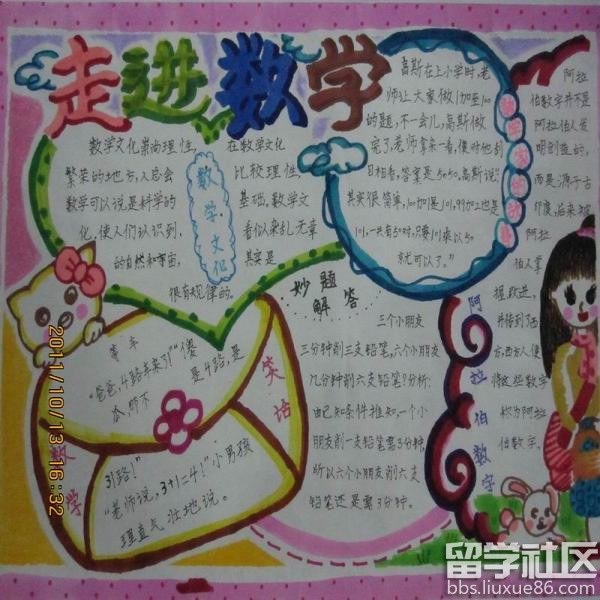 走进数学
数学文化崇尚理性,
繁荣的地方,人总会
数学可以说是科学的
化,使人们认识到,
的自然和宇宙,
很有规律的。
数学文化
在数学文化
比较理性,
基础,数学文
看似杂乱无章
其实是
高斯在上小学时,老
师让大家做1加至100
的题,不一会儿,高斯做
完了,老师拿来一看,便对他刮
目相看,答案是5050,高斯说:"
其实很简单,100加是101,99加2也是
101,一共有50对,只要101乘以50
就可以了。"
阿拉
伯数字并不是
阿拉伯人发
明创造的,
而是源于古
印度,后来被
阿拉
伯人掌
握、改进,
并传到了西
方,西方人便
将这些数字
称为阿拉
伯数字。
阿拉伯数字
妙题
解答
三个小朋友
三分钟削三支铅笔,六个小朋友
几分钟削六支铅笔?分析:
由已知条件推知,一个小
朋友削一支铅笔需3分钟,
所以六个小朋友削六支
铅笔还是需3分钟。
数学
笑话
等车
"爸爸,4路车来了!""傻
是4路,是
31路!"
"老师说,3+1=4!"小男孩
理直气壮地说。
2011/10/13 16:32
留学社区
bbs.liuxue86.com